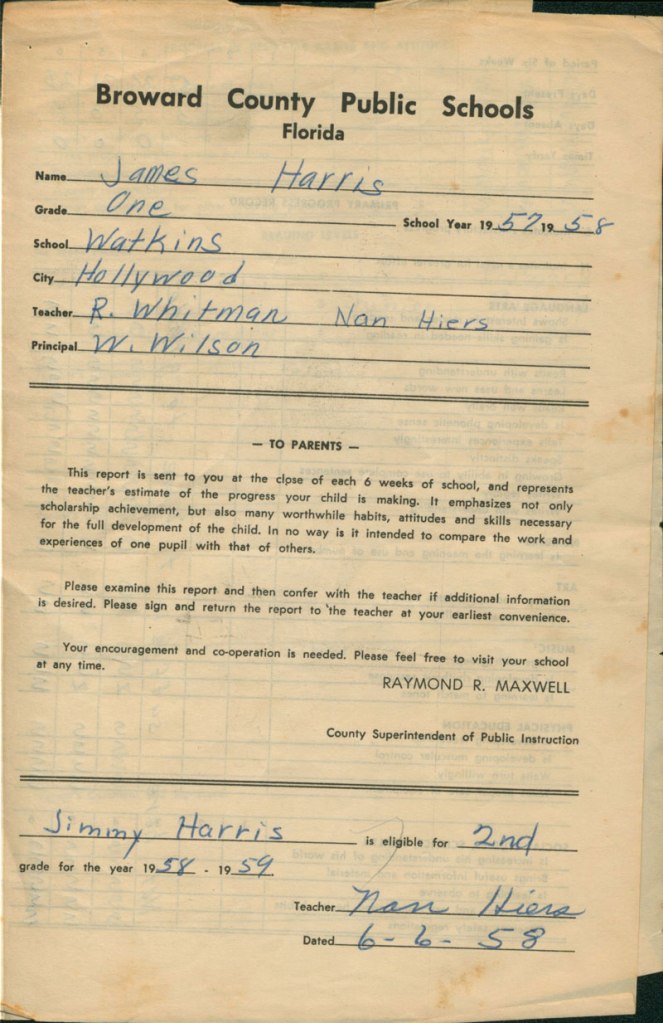 Broward County Public Schools
Florida
Name James Harris
Grade One School Year 19 57 19 58
School Watkins
City Hollywood
Teacher R. Whitman Nan Hiers
Principal W. Wilson
— TO PARENTS —
This report is sent to you at the close of each 6 weeks of school, and represents
the teacher's estimate of the progress your child is making. It emphasizes not only
scholarship achievement, but also many worthwhile habits, attitudes and skills necessary
for the full development of the child. In no way is it intended to compare the work and
experiences of one pupil with that of others.
Please examine this report and then confer with the teacher if additional information
is desired. Please sign and return the report to the teacher at your earliest convenience.
Your encouragement and co-operation is needed. Please feel free to visit your school
at any time.
RAYMOND R. MAXWELL
County Superintendent of Public Instruction
Jimmy Harris is eligible for 2nd
grade for the year 19 58 - 19 59.
Teacher Nan Hiers
Dated 6-6-58